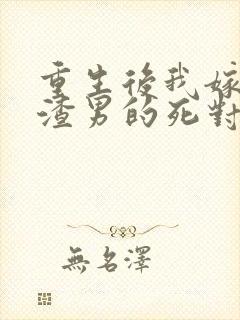 重生後我嫁
渣男的死對
無名澤